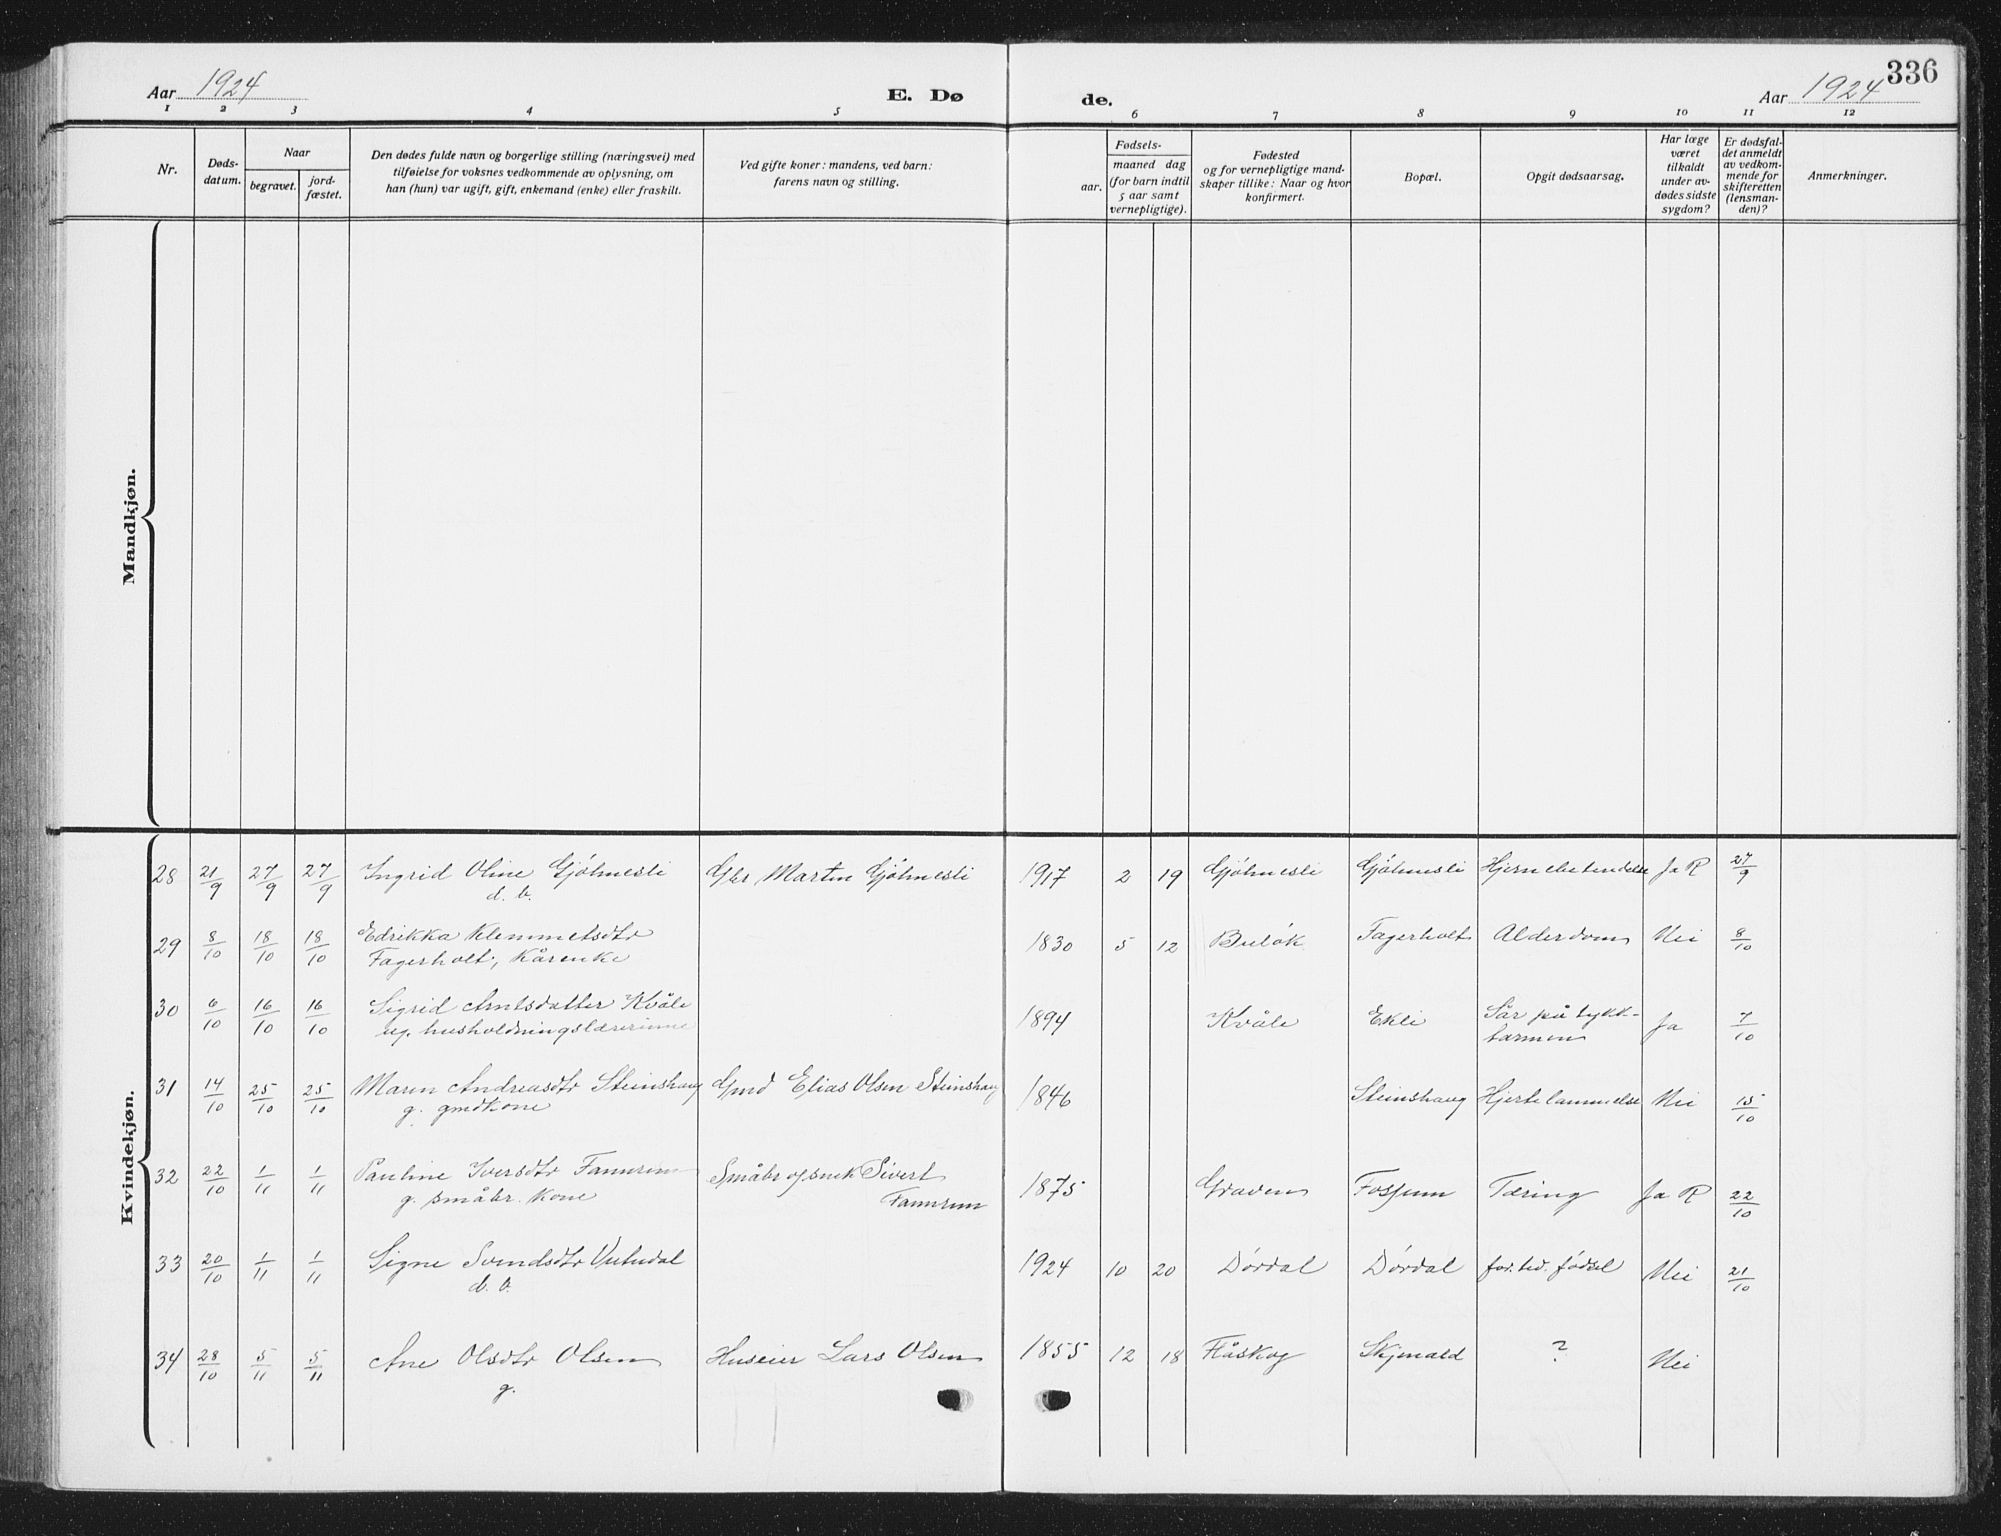 336
Aar 1924
E. Dø
de.
Aar 1924
1 2 3 4 5 6 7 8 9 10 11 12
Nr.
Døds-
datum.
Naar
begravet.
jord-
fæstet.
Den dødes fulde navn og borgerlige stilling (næringsvei) med
tilføielse for voksnes vedkommende av oplysning, om
han (hun) var ugift, gift, enkemand (enke) eller fraskilt.
Ved gifte koner: mandens, ved barn:
farens navn og stilling.
Fødsels-
aar.
maaned dag
(for barn indtil
5 aar samt
vernepligtige).
Fødested
og for vernepligtige mand-
skaper tillike: Naar og hvor
konfirmert.
Bopæl.
Opgit dødsaarsag.
Har læge
været
tilkaldt
under av-
dødes sidste
sygdom?
Er dødsfal-
det anmeldt
av vedkom-
mende for
skifteretten
(lensman-
den)?
Anmerkninger.
Mandkjøn.
Kvindekjøn.
28 21/9 27/9 27/9 Ingrid Oline Gjøhnesli Gbr Martin Gjøhnesli 1917 2 19 Gjøhnesli Gjøhnesli Hjernebetendelse Ja R 27/9
d. b.
29 8/10 18/10 18/10 Edrikka Klemmetsdtr 1830 5 12 Buløk Fagerholt Alderdom Nei 8/10
Fagerholt, kårenke
30 6/10 16/10 16/10 Sigrid Arntsdatter Kvåle 1894 Kvåle Ekli Sår på tykk- Ja 7/10
ug. husholdningslærerinne tarmen
31 14/10 25/10 25/10 Maren Andreasdtr Steinshaug Gmd Elias Olsen Steinshaug 1846 Steinshaug Hjertelammelse Nei 15/10
g. gmdkone
32 22/10 1/11 1/11 Pauline Iversdtr Fannrem Småbr og snek Sivert 1875 Graven Fossum Tæring Ja R 22/10
g. småbr. kone Fannrem
33 20/10 1/11 1/11 Signe Svendsdtr Vutudal 1924 10 20 Dórdal Dórdal for. tid. fødsel Nei 21/10
d. b.
34 28/10 5/11 5/11 Ane Olsdtr Olsen Huseier Lars Olsen 1855 12 18 Flåskog Skjenald ? Nei
g.